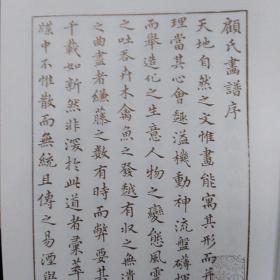 顧氏畫譜序
天地自然之文惟畫能寓其形而
理當其心會趣溢機動神流盤礴揮
而舉造化之生意人物之變態風雲
之吞吞卉木禽魚之發越有収之無遺
之曲盡者縑藤之數有時而弊耍其
千載如新然非深於此道者彙萃
牒中不惟散而無統且傳之易湮與